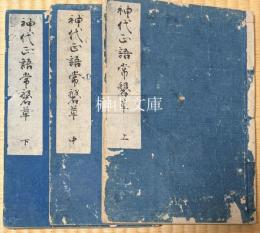 神代正語常磐草 上
神代正語常磐草 中
神代正語常磐草 下